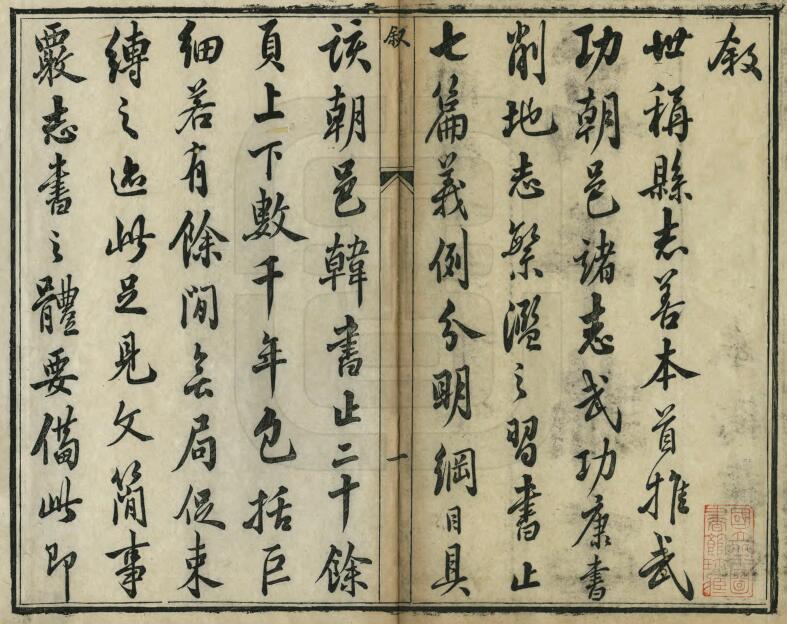 敘
世稱縣志善本首推武
功朝邑諸志武功康書
削地志繁濫之習書止
七篇義例分明綱目具
敘
一
該朝邑韓書止二十餘
頁上下數千年包括巨
細若有餘閒無局促束
縛之迹此足見文簡事
覈志書之體要備此即